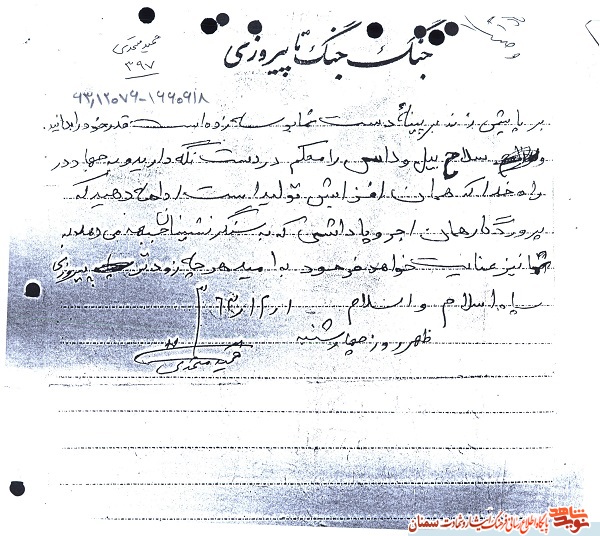 وصیتنامه
حمید محمدی
۳۹۷
جنگ جنگ تا پیروزی
۹۳/۱۲۰۷۶-۱۶۶۰۹/۸
بر پینهٔ دست شما بوسه زده است قدر خود را بدانید
و سلاح بیل و داس را محکم در دست نگه دارید و به جهاد در
راه خدا که همان افزایش تولید است ادامه دهید که
پروردگار همان اجر و پاداشی که به سنگرنشینان جبهه می دهد به
شما نیز عنایت خواهد فرمود به امید هر چه زودتر پیروزی
سپاه اسلام و السلام
ظهر روز چهارشنبه
حمید محمدی
نوید شاهد
پایگاه اطلاع رسانی فرهنگ ایثار و شهادت سمنان